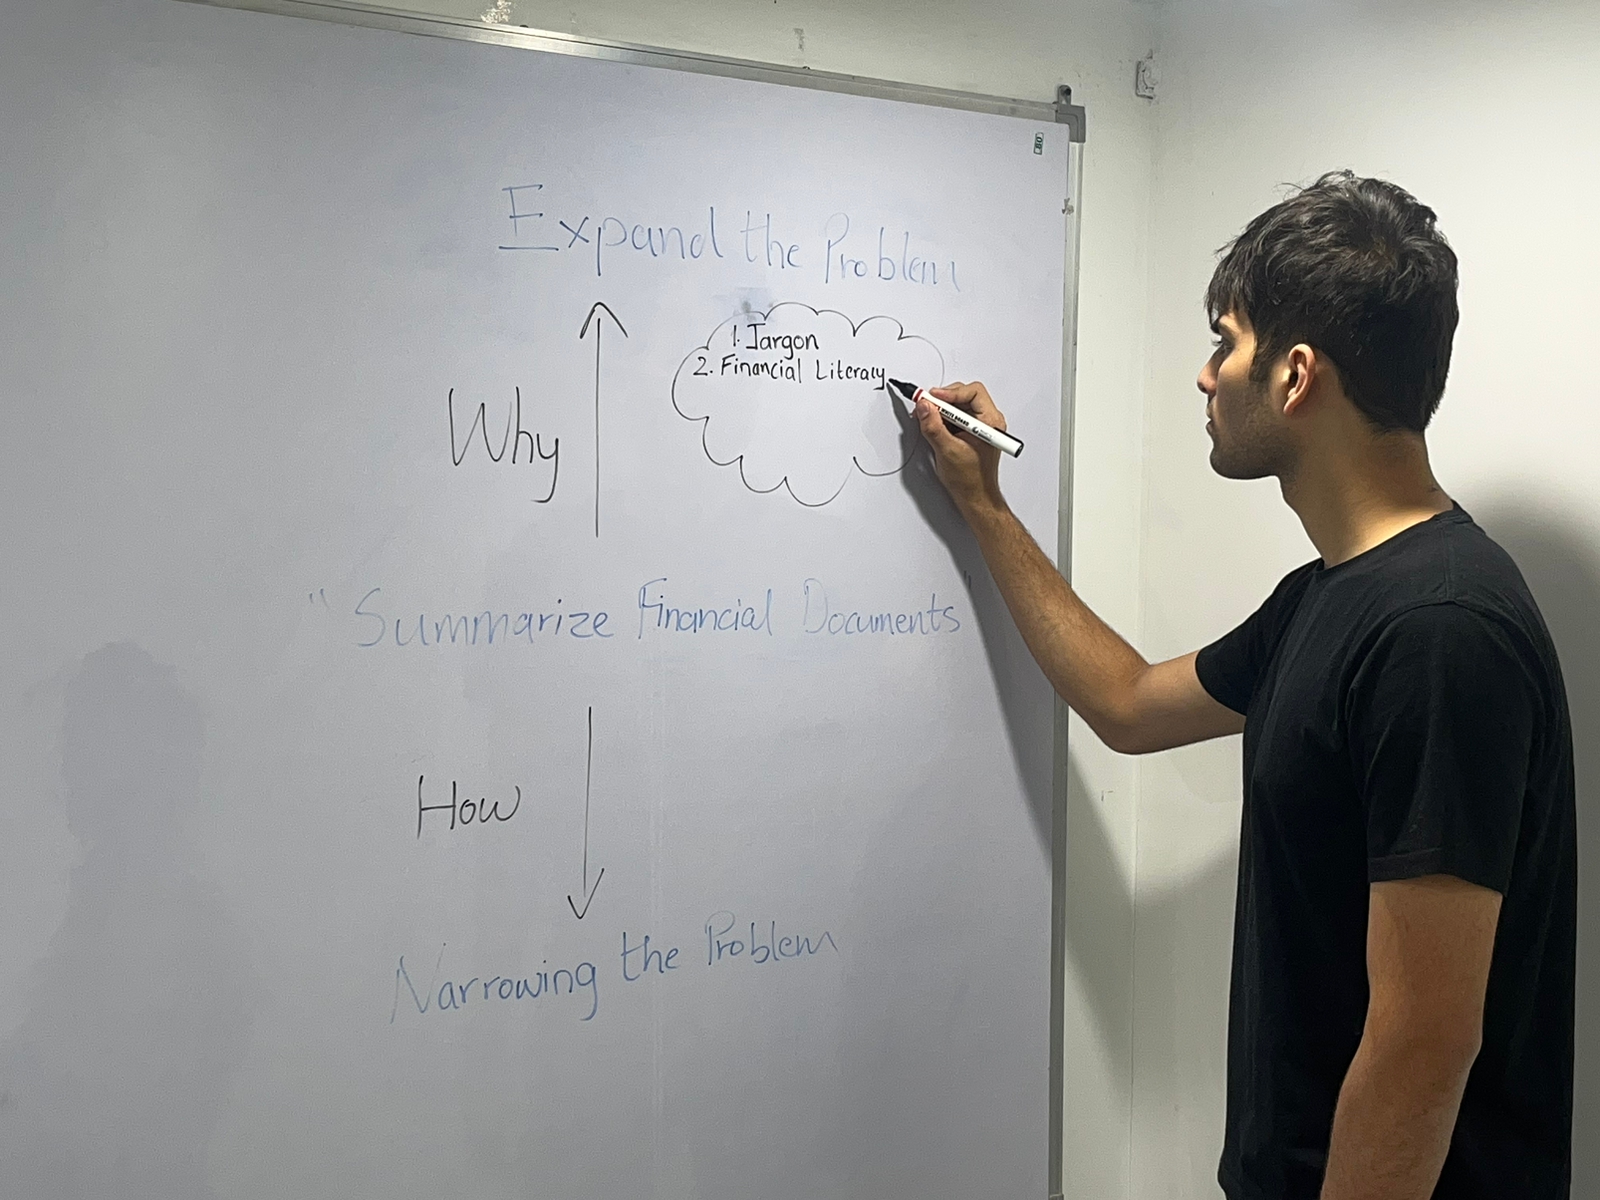 Expand the Problem
1. Jargon
2. Financial Literacy
Why
"Summarize Financial Documents"
How
Narrowing the Problem